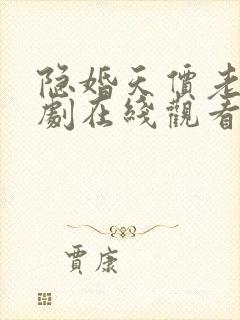 隐婚天價老
劇在綫觀看
賈康